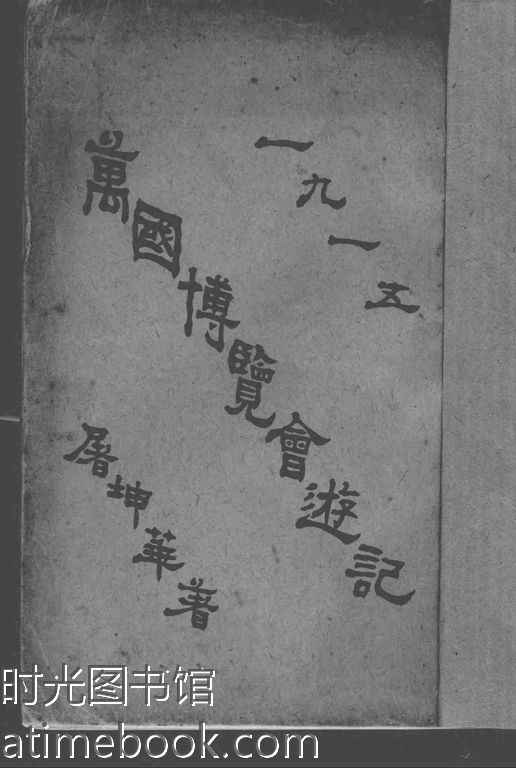 一九一五
萬國博覽會遊記
屠坤華著
时光图书馆
atimebook.com